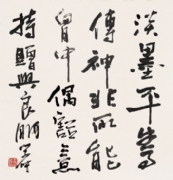 淡墨平
傳神非所能
胷中偶豁意
持贈與良朋